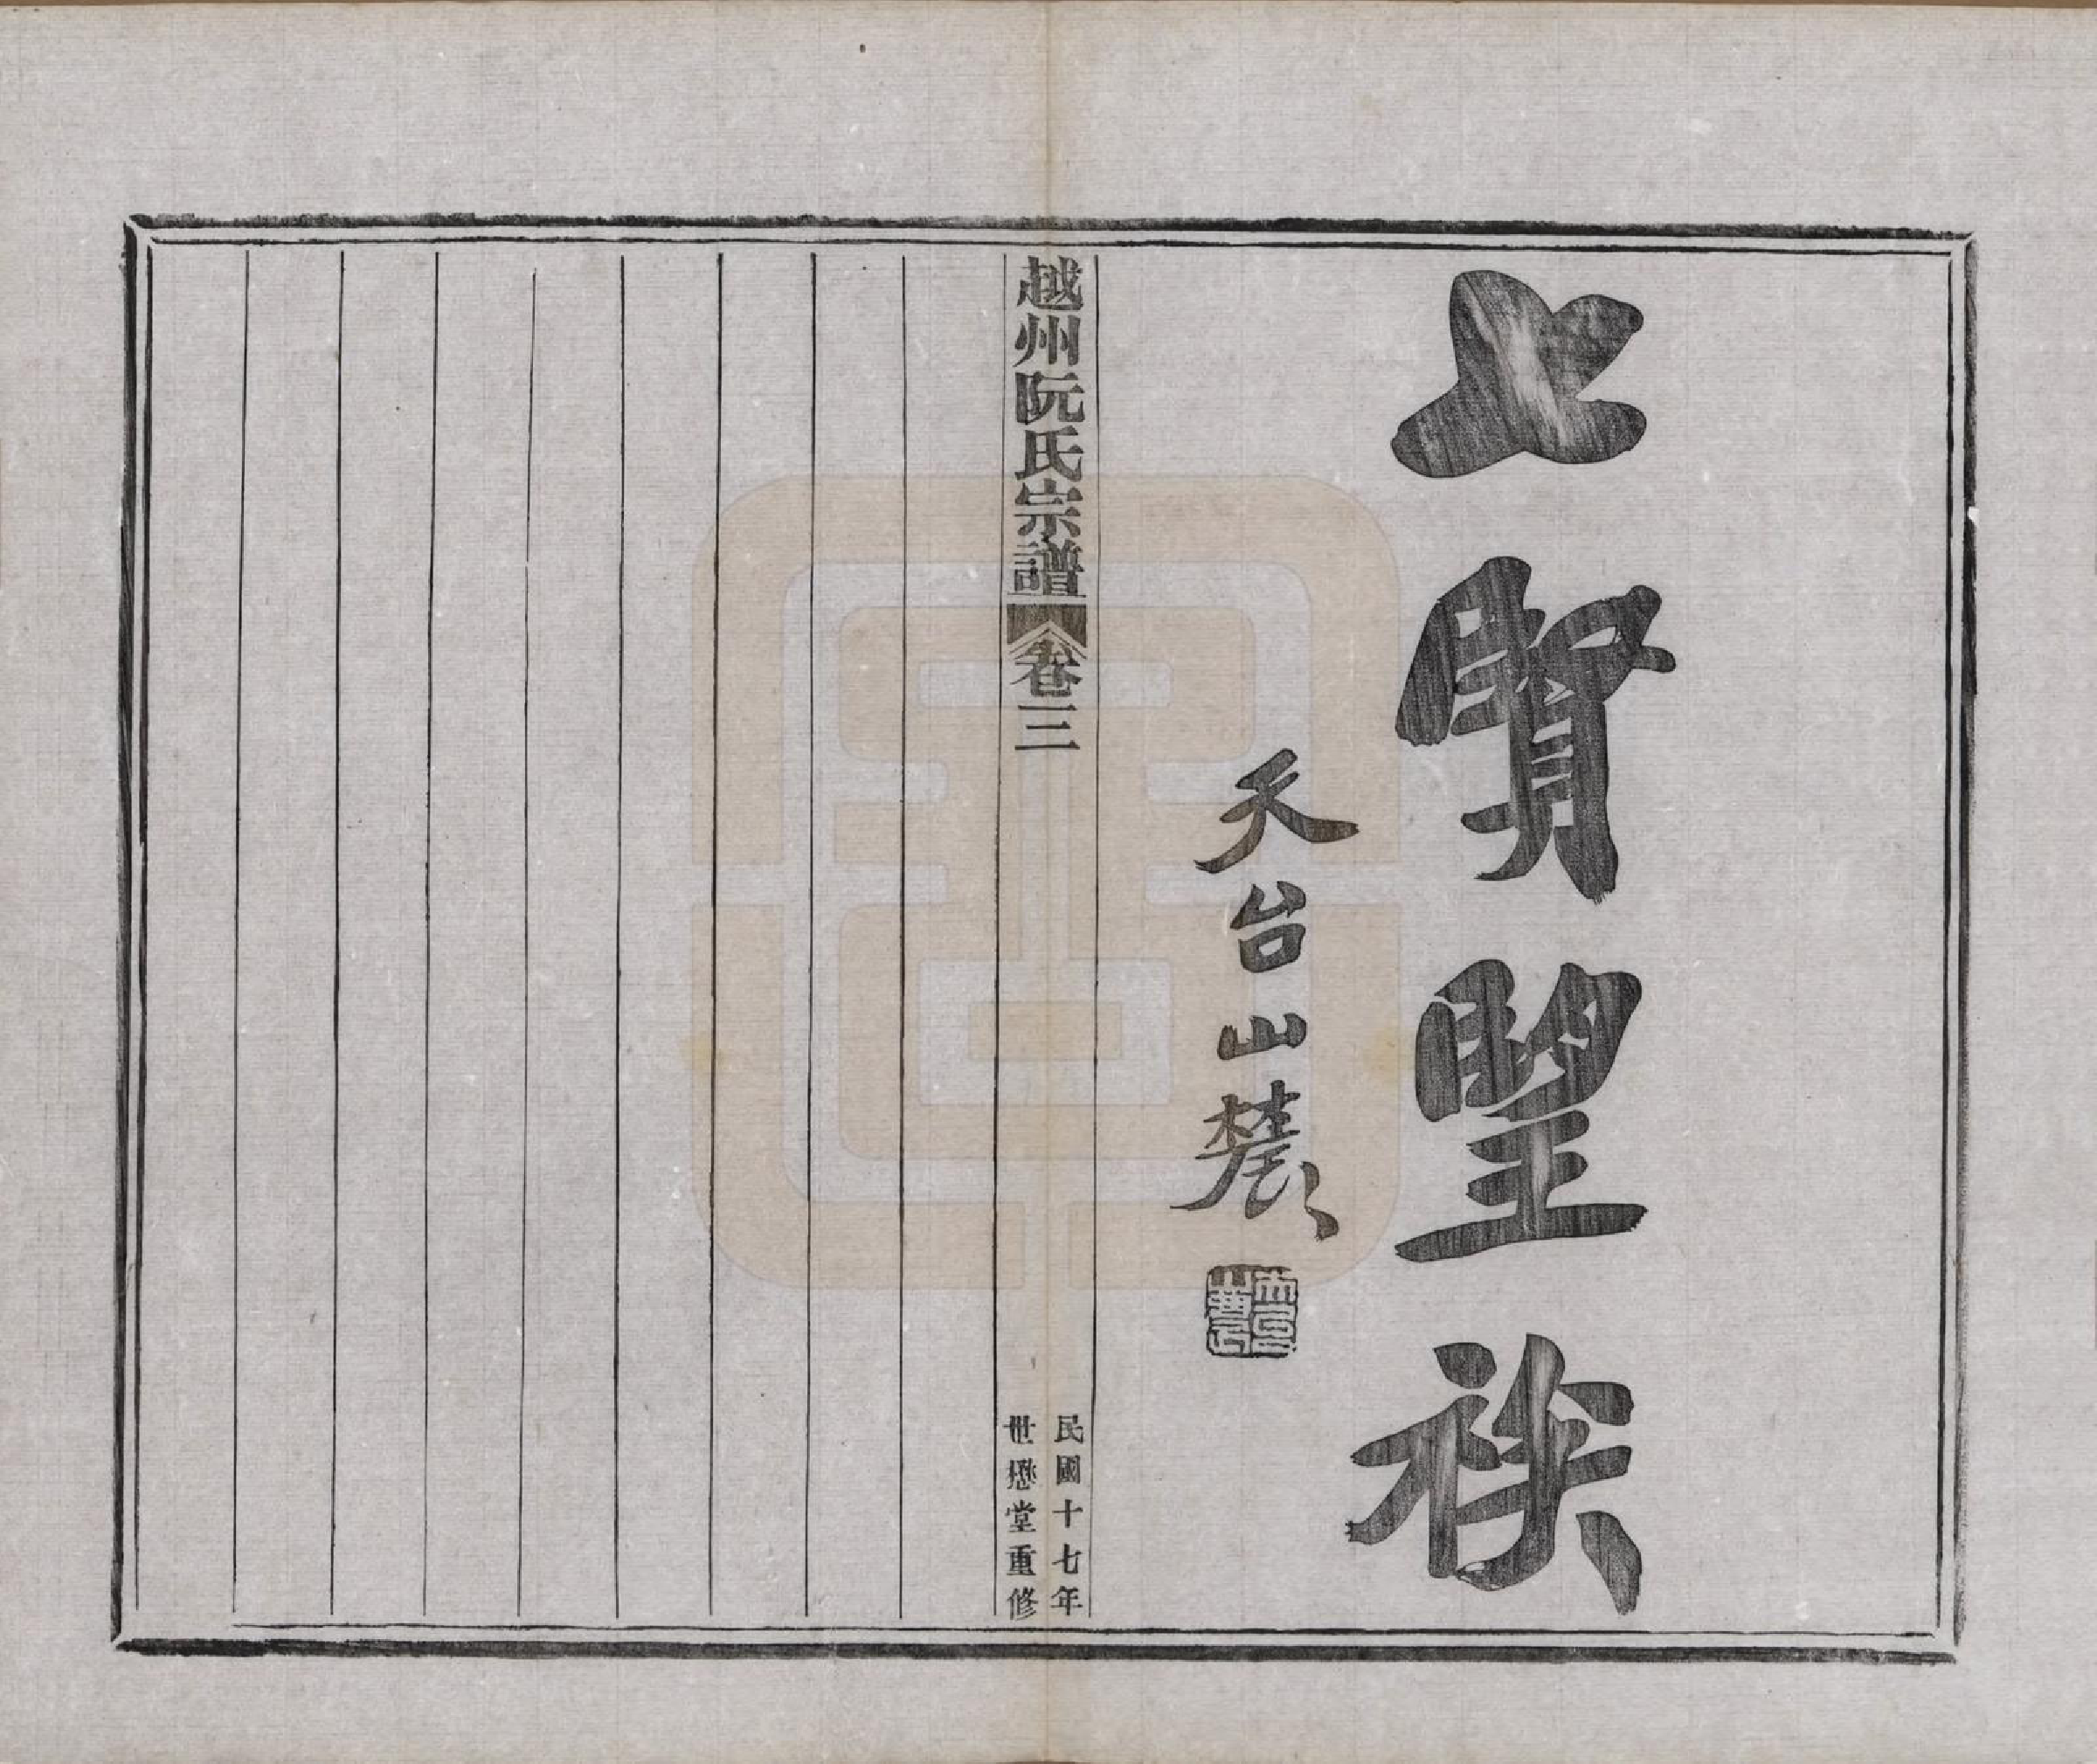 七賢望族
天台山農
越州阮氏宗譜 卷三
民國十七年
世懋堂重修